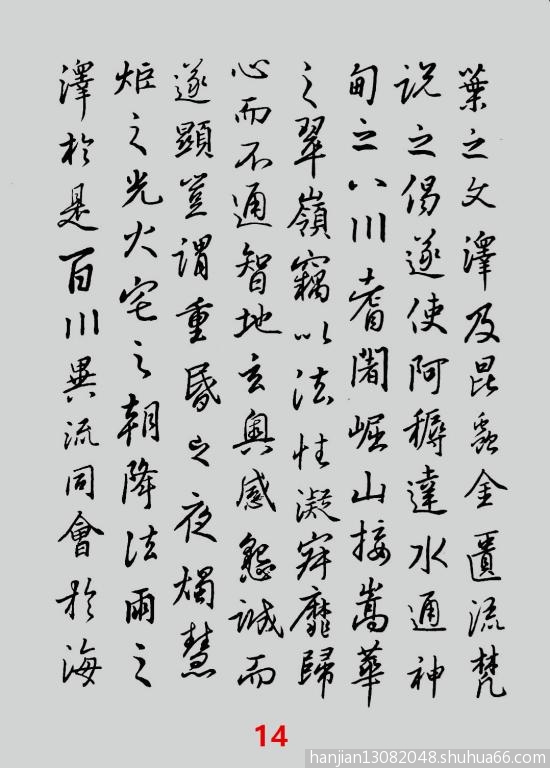 葉之文澤及昆蟲金匱流梵
說之偈遂使阿耨達水通神
甸之八川耆闍崛山接嵩華
之翠嶺竊以法性凝寂靡歸
心而不通智地玄奧感懇誠而
遂顯豈謂重昏之夜燭慧
炬之光火宅之朝降法雨之
澤於是百川異流同會於海
14
hanjian13082048.shuhua66.com